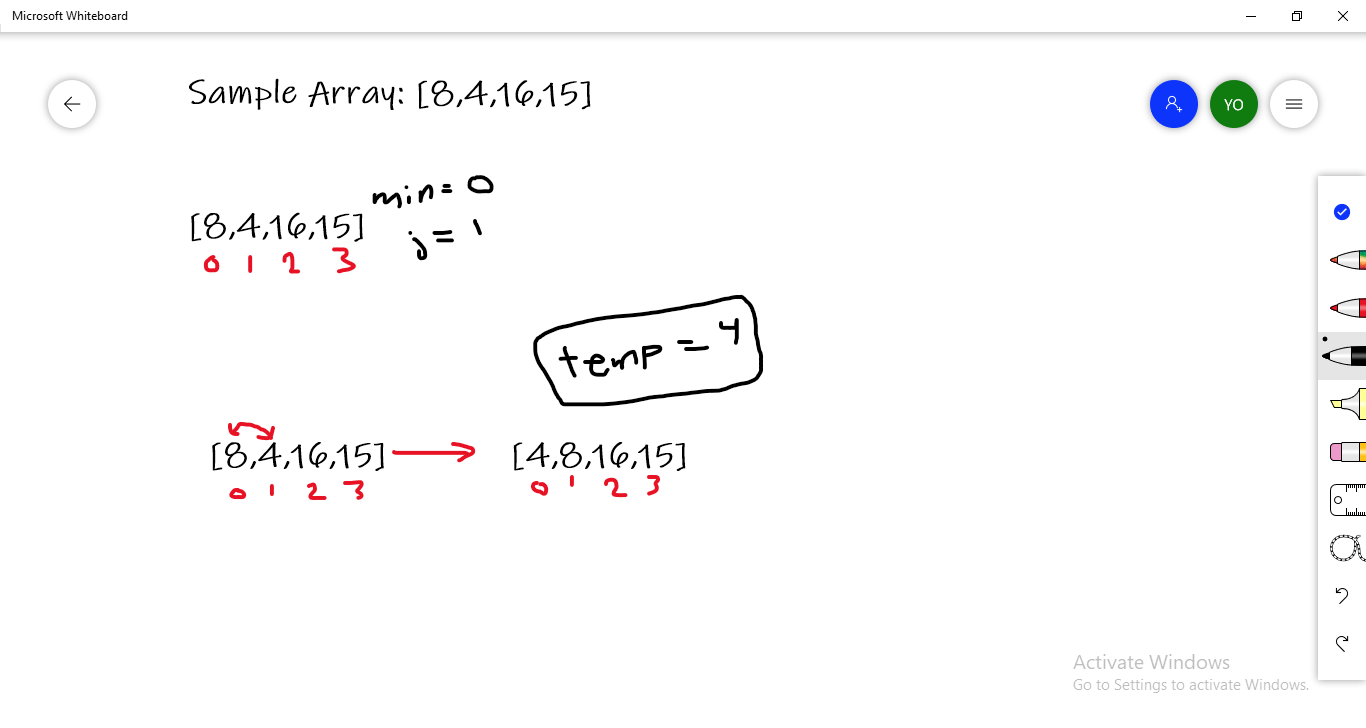 Microsoft Whiteboard
Sample Array: [8,4,16,15]
YO
min = 0
[8,4,16,15]
j = 1
0 1 2 3
temp = 4
[8,4,16,15] [4,8,16,15]
0 1 2 3 0 1 2 3
Activate Windows
Go to Settings to activate Windows.